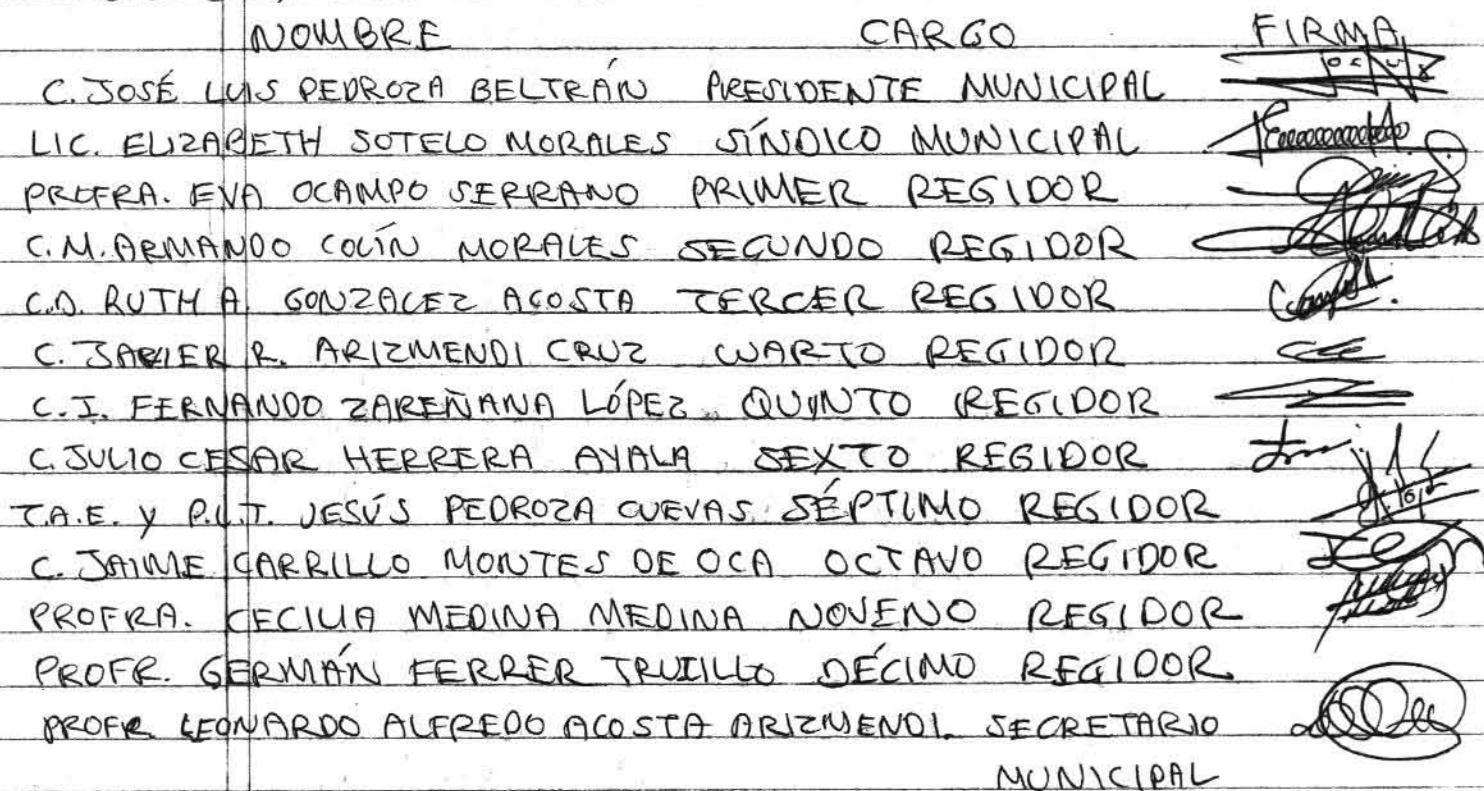 NOMBRE CARGO FIRMA
C. JOSÉ LUIS PEDROZA BELTRÁN PRESIDENTE MUNICIPAL
LIC. ELIZABETH SOTELO MORALES SÍNDICO MUNICIPAL
PROFRA. EVA OCAMPO SERRANO PRIMER REGIDOR
C.M. ARMANDO COLÍN MORALES SEGUNDO REGIDOR
C.D. RUTH A. GONZALEZ ACOSTA TERCER REGIDOR
C. JAVIER R. ARIZMENDI CRUZ CUARTO REGIDOR
C.I. FERNANDO ZAREÑANA LÓPEZ QUINTO REGIDOR
C. JULIO CESAR HERRERA AYALA SEXTO REGIDOR
T.A.E. Y P.L.T. JESÚS PEDROZA CUEVAS SÉPTIMO REGIDOR
C. JAIME CARRILLO MONTES DE OCA OCTAVO REGIDOR
PROFRA. CECILIA MEDINA MEDINA NOVENO REGIDOR
PROFR. GERMÁN FERRER TRUJILLO DÉCIMO REGIDOR
PROFR. LEONARDO ALFREDO ACOSTA ARIZMENDI. SECRETARIO
MUNICIPAL